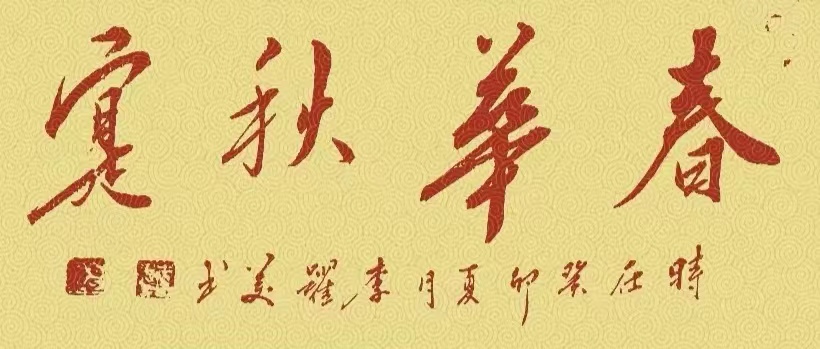 春華秋寔
時在癸卯夏月李耀美书